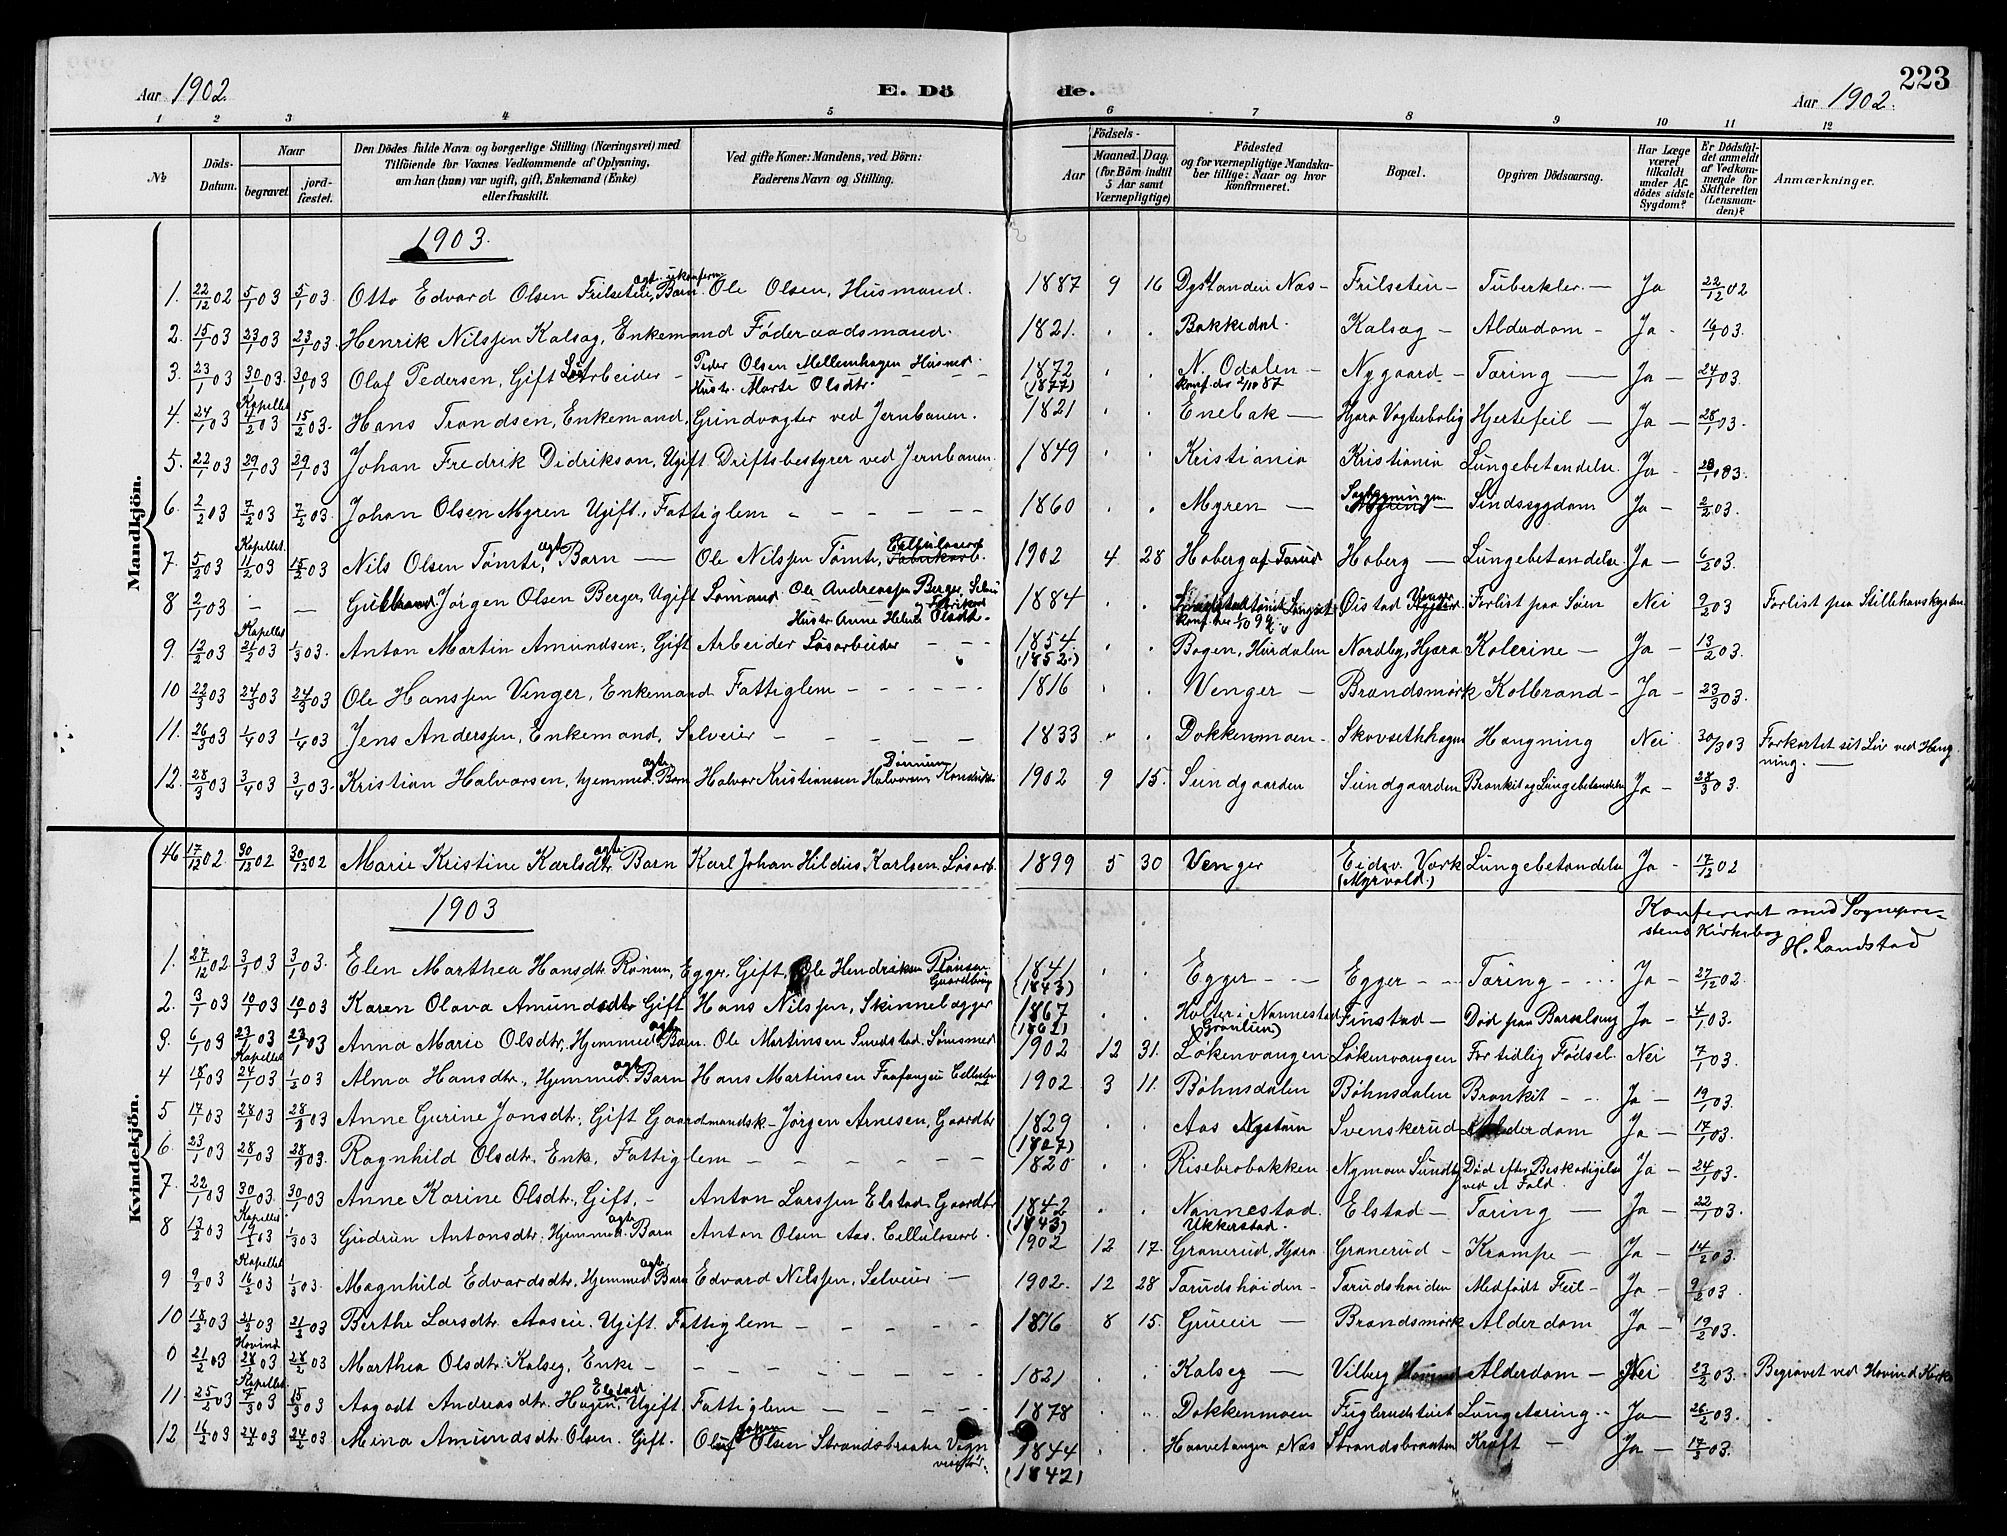 223
Aar 1902. E. Döde. Aar 1902.
1 2 3 4 5 6 7 8 9 10 11 12
№ Döds-Datum. Naar begravet. jordfæstet. Den Dödes fulde Navn og borgerlige Stilling (Næringsvei) med Tilföiende for Voxnes Vedkommende af Oplysning, om han (hun) var ugift, gift, Enkemand (Enke) eller fraskilt. Ved gifte Koner: Mandens, ved Börn: Faderens Navn og Stilling. Födsels- Aar Maaned. Dag. (for Börn indtil 5 Aar samt Værnepligtige) Födested og for værnepligtige Mandskaber tillige: Naar og hvor konfirmeret. Bopæl. Opgiven Dödsaarsag. Har Læge været tilkaldt under Afdödes sidste Sygdom? Er Dödsfaldet anmeldt af Vedkommende for Skifteretten (Lensmanden)? Anmærkninger.
Mandkjön.
1903.
1. 22/12 02 5/1 03 5/1 03. Otto Edvard Olsen Frilsetin, ægt. ukonferm. Barn. Ole Olsen, Husmand. 1887 9 16 Nas- Frilsetin- Tuberkler. — Ja 22/12 02
2. 15/1 03 23/1 03 23/1 03. Henrik Nilssen Kalsag, Enkemand Føderaadsmand. 1821. . . Bakkedal. Kalsag - Alderdom - Ja - 16/1 03.
3. 23/1 03 30/1 03. 30/1 03 Olaf Pedersen, Gift Løsarbeider - Peder Olsen Mellemhagen Husmd. Hustr. Marte Olsdtr. 1872 (1877) . . N. Odalen - konf. der 2/10 87 Nygaard - Tæring — Ja - 24/1 03.
4. 24/1 03 Kapellet 4/2 03 15/2 03. Hans Trondsen, Enkemand, Grindvogter ved Jernbanen. 1821 . . Enebak — Hjæra Vogterbolig Hjertefeil — Ja - 28/1 03.
5. 22/1 03 29/1 03 29/1 03 Johan Fredrik Didrikson, Ugift Driftsbestyrer ved Jernbanen. 1849 . . Kristiania Kristiania Lungebetændelse. Ja -
6. 2/2 03 7/2 03 7/2 03. Johan Olsen Myren Ugift, Fattiglem - - - - - 1860 . . Myren — Sindssygdom Ja - 2/2 03.
7. 5/2 03 Kapellet. 11/2 03 15/2 03 Nils Olsen Tømte, ægt Barn — Ole Nilssen Tømte, Fabrikarb. 1902 4 28 Hoberg af Tærud Hoberg — Lungebetændelse Ja - 6/2 03.
8 2/2 03 - - Gulbrand Jørgen Olsen Berger, Ugift Sømand Ole Andreassen Berger, Selvei Hustr. Anne Helene Olsdtr. 1884 . . Øistad Forlist paa Søen Nei 9/2 03 Forlist paa Stillehavskysten
9. 12/2 03 Kapellet 21/2 03 1/3 03. Anton Martin Amundsen, Gift Arbeider Løsarbeider - - - 1854. (1852.) . . Bogen, Hurdalen Nordby, Hjæra Kolerine — Ja - 13/2 03.
10 22/3 03 24/3 03 24/3 03 Ole Hanssen Venger, Enkemand Fattiglem - - - - 1816 . . Venger - Brandsmørk Kolbrand - Ja - 23/3 03.
11. 26/3 03 1/4 03 1/4 03 Jens Anderssen, Enkemand, Selveier - - - - 1833 . . Dokkenmoen - Skovsethhagen Hængning Nei 30/3 03 Forkortet sit Liv ved Hængning. —
12. 28/3 03 3/4 03 3/4 03. Kristian Halvorsen, hjemmed. ægt. Barn Halvor Kristiansen Halvorsen 1902 9 15. Sundgaarden Sundgaarden Bronkit og Lungebetændelse Ja - 28/3 03.
Kvindekjön.
46 17/12 02. 30/12 02 30/12 02 Marie Kristine Karlsdtr. ægt. Barn Karl Johan Hildus Karlsen, Løsarb. 1899 5 30 Venger Eidsv. Værk (Myrvold.) Lungebetændelse Ja - 17/12 02
1903 Konfereret med Sogneprestens Kirkebog H. Landstad
1. 27/12 02 3/1 03 3/1 03. Elen Marthea Hansdtr. Rønsen, Egger, Gift, Ole Hendriksen Rønsen Gaardbrug 1841 (1843) . . Egger - - Egger - - Tæring - - Ja - 27/12 02.
2. 3/1 03 10/1 03 10/1 03. Karen Olava Amundsdtr Gift Hans Nilssen, Skinnelægger 1867 . . Holter i Nannestad Finstad - Død paa Barselseng Ja - 4/1 03.
3. 6/1 03 23/1 03 23/1 03 Anna Marie Olsdtr, Hjemmed ægte Barn. Ole Martinsen Sundstad. 1902 12 31. Løkenvangen Løkenvangen For tidlig Fødsel. Nei 7/1 03.
4 18/1 03 Kapellet 24/1 03 1/2 03 Alma Hansdtr., Hjemmed. ægt Barn Hans Martinsen 1902 3 11. Bøhnsdalen Bøhnsdalen Bronkit - - Ja - 19/1 03.
5 17/1 03 28/1 03 28/1 03 Anne Gurine Jonsdtr. Gift Gaardmandsk. - Jørgen Arnesen, Gaardbr 1829 (1827) . . Aas Nystuin Svenskerud Alderdom Ja - 17/1 03.
6. 23/1 03 28/1 03 28/1 03. Ragnhild Olsdtr. Enk. Fattiglem - - - - - 1820 . . Risebrobakken Nymoen Sundby Død efter Beskadigelse ved et Fald. Ja - 24/1 03.
7. 22/1 03 30/1 03. 30/1 03 Anne Karine Olsdtr, Gift. - Anton Larssen Elstad Gaardbr 1842 (1843) . . Nannestad. Ukkerstad. Elstad - Tæring — Ja - 22/1 03.
8 13/2 03 Kapellet 19/2 03 1/3 03 Gudrun Antonsdtr. Hjemmed. ægt. Barn Anton Olsen Aas. Cellulosearb. 1902 12 17. Granerud, Hjæra Granerud - Krampe - Ja - 14/2 03.
9 9/2 03 Kapellet 16/2 03 1/3 03. Magnhild Edvardsdtr, Hjemmed ægt. Barn Edvard Nilssen, Selveier — 1902. 12 28 Tærudshøiden - Tærudshøiden Medfødt Feil - Ja - 9/2 03.
10 18/2 03 21/2 03 21/2 03 Berthe Larsdtr Aaseie. Ugift. Fattiglem - - - - - 8 15. Grueie — Brandsmørk Alderdom Ja - 19/2 03.
0 21/2 03 Hovind 28/2 03 28/2 03 Marthea Olsdtr. Kalseg, Enke - - - - - 1821 . . Kalseg — Vilberg Alderdom - Nei 23/2 03. Begravet ved Hovind Kirke
11. 25/2 03 Kapellet 7/3 03 15/3 03 Aagodt Andreasdtr. Hagen, Elstad Ugift, Fattiglem - - - - 1878 . . Dokkenmoen Fuglerudstuet Lungetæring - Ja - 26/2 03.
12 16/2 03 24/2 03 24/2 03 Mina Amundsdtr. Olsen. Gift. Oluf Johan Olsen Strandsbraaten 1844 (1842) . . Nas Strandsbraaten Kræft - Ja - 17/2 03.